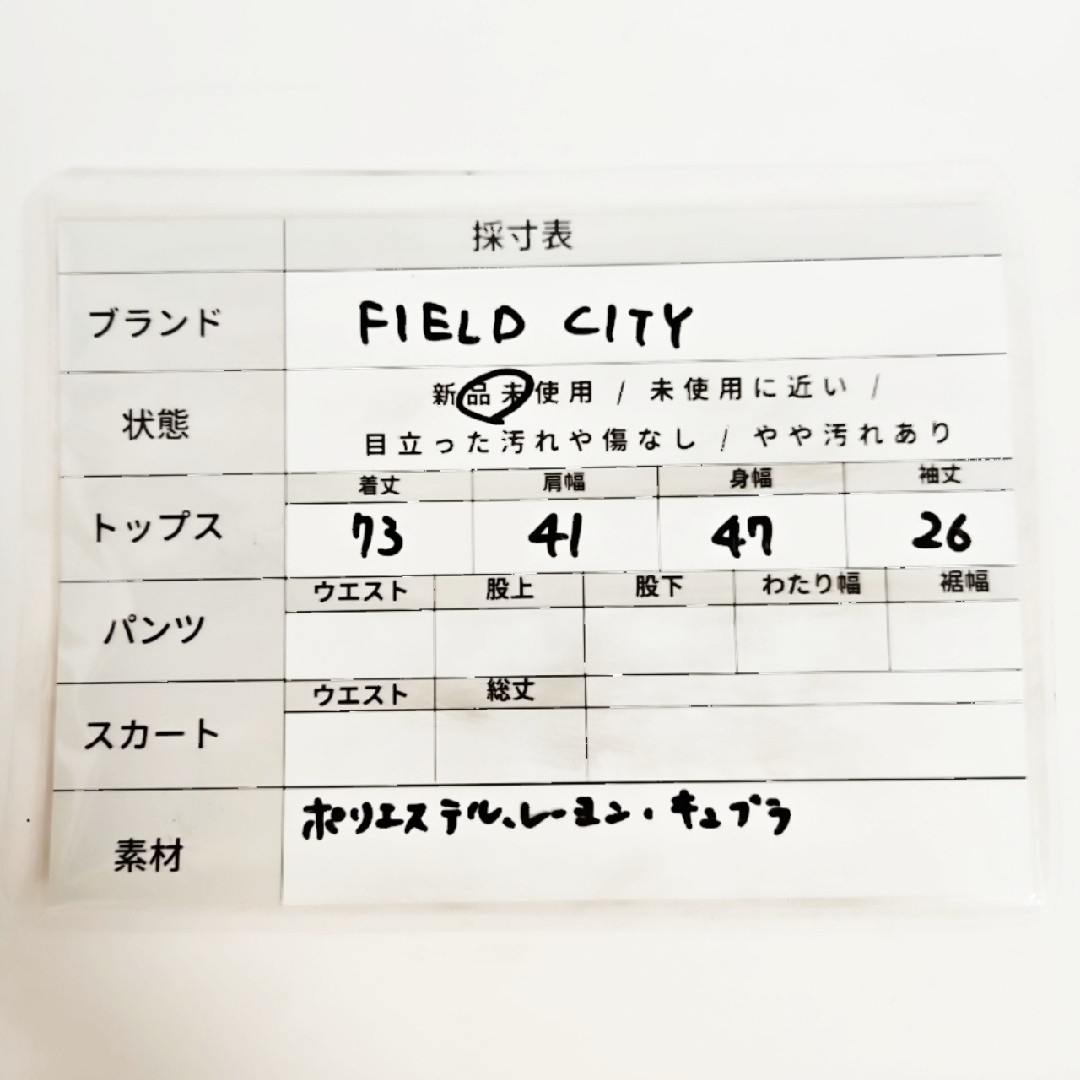 採寸表
ブランド FIELD CITY
状態 新品未使用 / 未使用に近い /
目立った汚れや傷なし / やや汚れあり
トップス 着丈 肩幅 身幅 袖丈
73 41 47 26
パンツ ウエスト 股上 股下 わたり幅 裾幅
スカート ウエスト 総丈
素材 ポリエステル、レーヨン・キュプラ